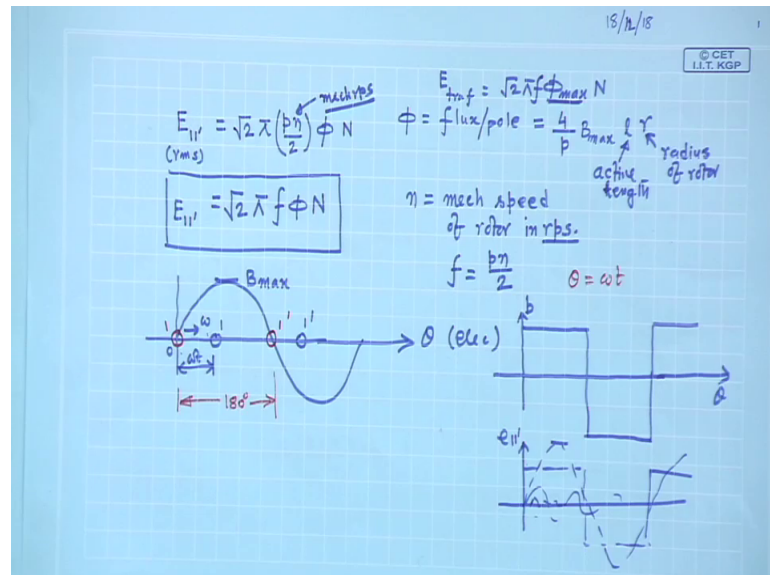 18/12/18
© CET
I.I.T. KGP
mech rps
E₁₁' = √2 π (pn/2) ϕ N
(rms)
E₁₁' = √2 π f ϕ N
E_trnf = √2 π f ϕmax N
ϕ = flux/pole = 4/p Bmax l r
active length
radius of rotor
n = mech speed
of rotor in rps.
f = pn/2
θ = ωt
Bmax
1 ω 1 1' 1'
0
ωt
180°
θ (elec)
b
θ
e₁₁'